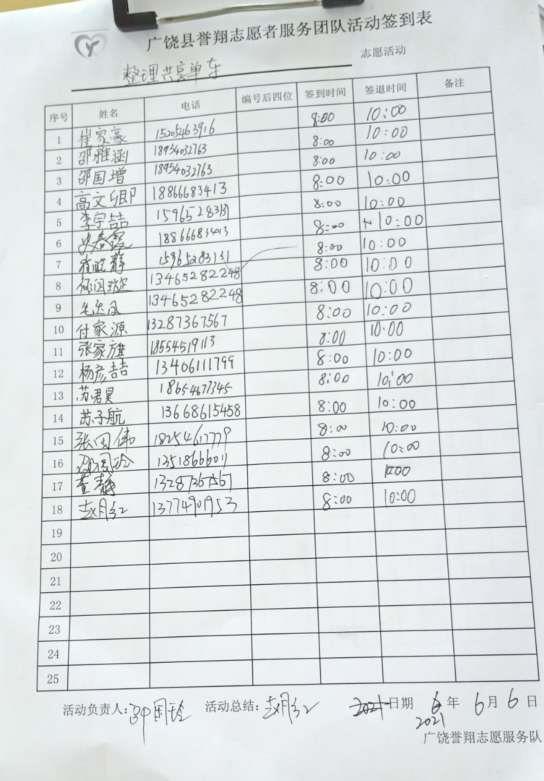 广饶县誉翔志愿者服务团队活动签到表
整理共享单车 志愿活动
序号 姓名 电话 编号后四位 签到时间 签退时间 备注
1 崔家豪 15205463916 8:00 10:00
2 邵雅涵 18954032763 8:00 10:00
3 邵国增 18954032763 8:00 10:00
4 高文 18866683413 8:00 10:00
5 李宇喆 8:00 10:00
6 18866683413 8:00 10:00
7 崔晓静 8:00 10:00
8 13465282248 8:00 10:00
9 13465282248 8:00 10:00
10 付家源 13287367567 8:00 10:00
11 张家旗 18554519113 8:00 10:00
12 杨彦喆 13406111799 8:00 10:00
13 苏君昊 18654677345 8:00 10:00
14 苏子航 13668615458 8:00 10:00
15 张国伟 18254617779 8:00 10:00
16 邵国玲 8:00 10:00
17 董静 13287367567 8:00 10:00
18 赵月红 13774901953 8:00 10:00
19
20
21
22
23
24
25
活动负责人:邵国玲 活动总结:赵月红 2021 日期 年 6月6日
2021
广饶誉翔志愿服务队